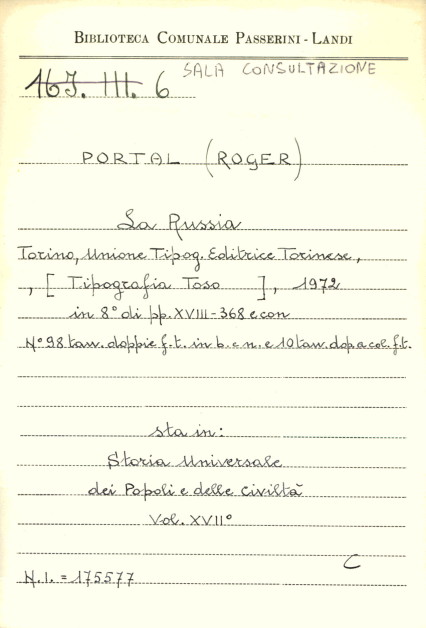 BIBLIOTECA COMUNALE PASSERINI - LANDI
SALA CONSULTAZIONE
16J. III. 6
PORTAL (ROGER)
La Russia
Torino, Unione Tipog. Editrice Torinese,
, [ Tipografia Toso ], 1972
in 8° di pp. XVIII-368 e con
N° 98 tav. doppie f.t. in b. e n. e 10 tav. dop. a col. f.t.
sta in:
Storia Universale
dei Popoli e delle Civiltà
Vol. XVII°
C
N.I. = 175577